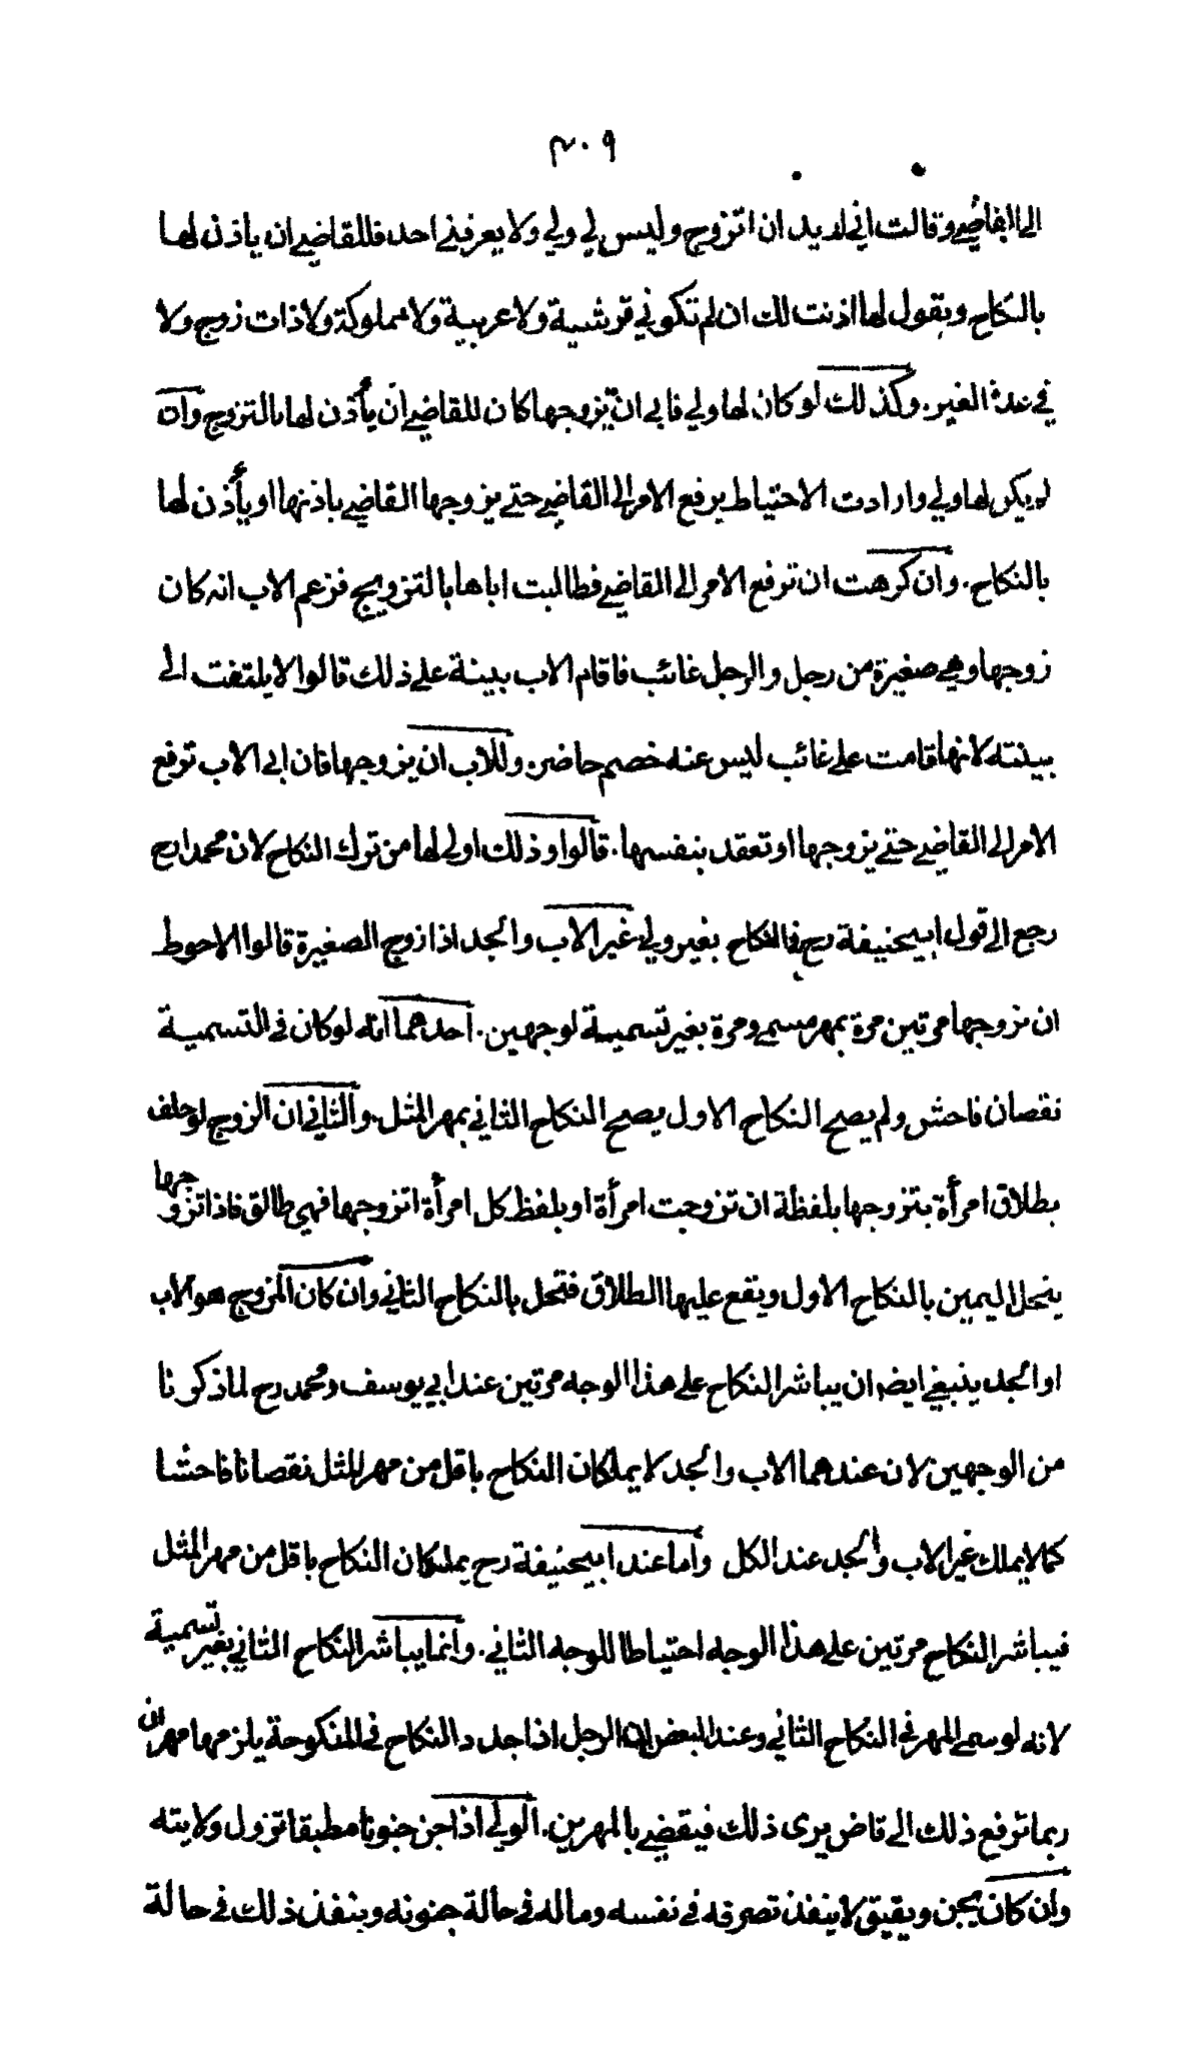 ٣٠٩
الى القاضي وقالت اني اريد ان اتزوج وليس لي ولي ولا يعرفني احد فللقاضي ان ياذن لها
بالنكاح ويقول لها اذنت لك ان لم تكوني قرشية ولا عربية ولا مملوكة ولا ذات زوج ولا
في عدة الغير. وكذلك لو كان لها ولي فابى ان يزوجها كان للقاضي ان يأذن لها بالتزوج وان
لم يكن لها ولي وارادت الاحتياط يرفع الامر الى القاضي حتى يزوجها القاضي باذنها او يأذن لها
بالنكاح. وان كرهت ان ترفع الامر الى القاضي فطالبت اباها بالتزويج فزعم الاب انه كان
زوجها وهي صغيرة من رجل والرجل غائب فاقام الاب بينة على ذلك قالوا لا يلتفت الى
بينته لانها قامت على غائب ليس عنه خصم حاضر. وللاب ان يزوجها فان ابى الاب ترفع
الامر الى القاضي حتى يزوجها او تعقد بنفسها. قالوا وذلك اولى لها من ترك النكاح لان محمدا رح
رجع الى قول ابيحنيفة رح في النكاح بغير ولي غير الاب والجد اذا زوج الصغيرة قالوا الاحوط
ان يزوجها مرتين مرة بمهر مسمى ومرة بغير تسمية لوجهين. احدهما انه لو كان في التسمية
نقصان فاحش ولم يصح النكاح الاول يصح النكاح الثاني بمهر المثل. والثاني ان الزوج لو حلف
بطلاق امرأة يتزوجها بلفظة ان تزوجت امرأة او بلفظ كل امرأة اتزوجها فهي طالق فاذا تزوجها
ينحل اليمين بالنكاح الاول ويقع عليها الطلاق فتحل بالنكاح الثاني وان كان المزوج هو الاب
او الجد ينبغي ايضا ان يباشر النكاح على هذا الوجه مرتين عند ابي يوسف ومحمد رح لما ذكرنا
من الوجهين لان عندهما الاب والجد لا يملكان النكاح باقل من مهر المثل نقصانا فاحشا
كما لا يملك غير الاب والجد عند الكل واما عند ابيحنيفة رح يملكان النكاح باقل من مهر المثل
فيباشر النكاح مرتين على هذا الوجه احتياطا للوجه الثاني. وانما يباشر النكاح الثاني بغير تسمية
لانه لو سمى المهر في النكاح الثاني وعند البعض ان الرجل اذا جدد النكاح في المنكوحة يلزمها مهران
ربما ترفع ذلك الى قاض يرى ذلك فيقضي بالمهرين. الولي اذا جن جنونا مطبقا تزول ولايته
وان كان يجن ويفيق لا ينفذ تصرفه في نفسه وماله في حالة جنونه وينفذ ذلك في حالة